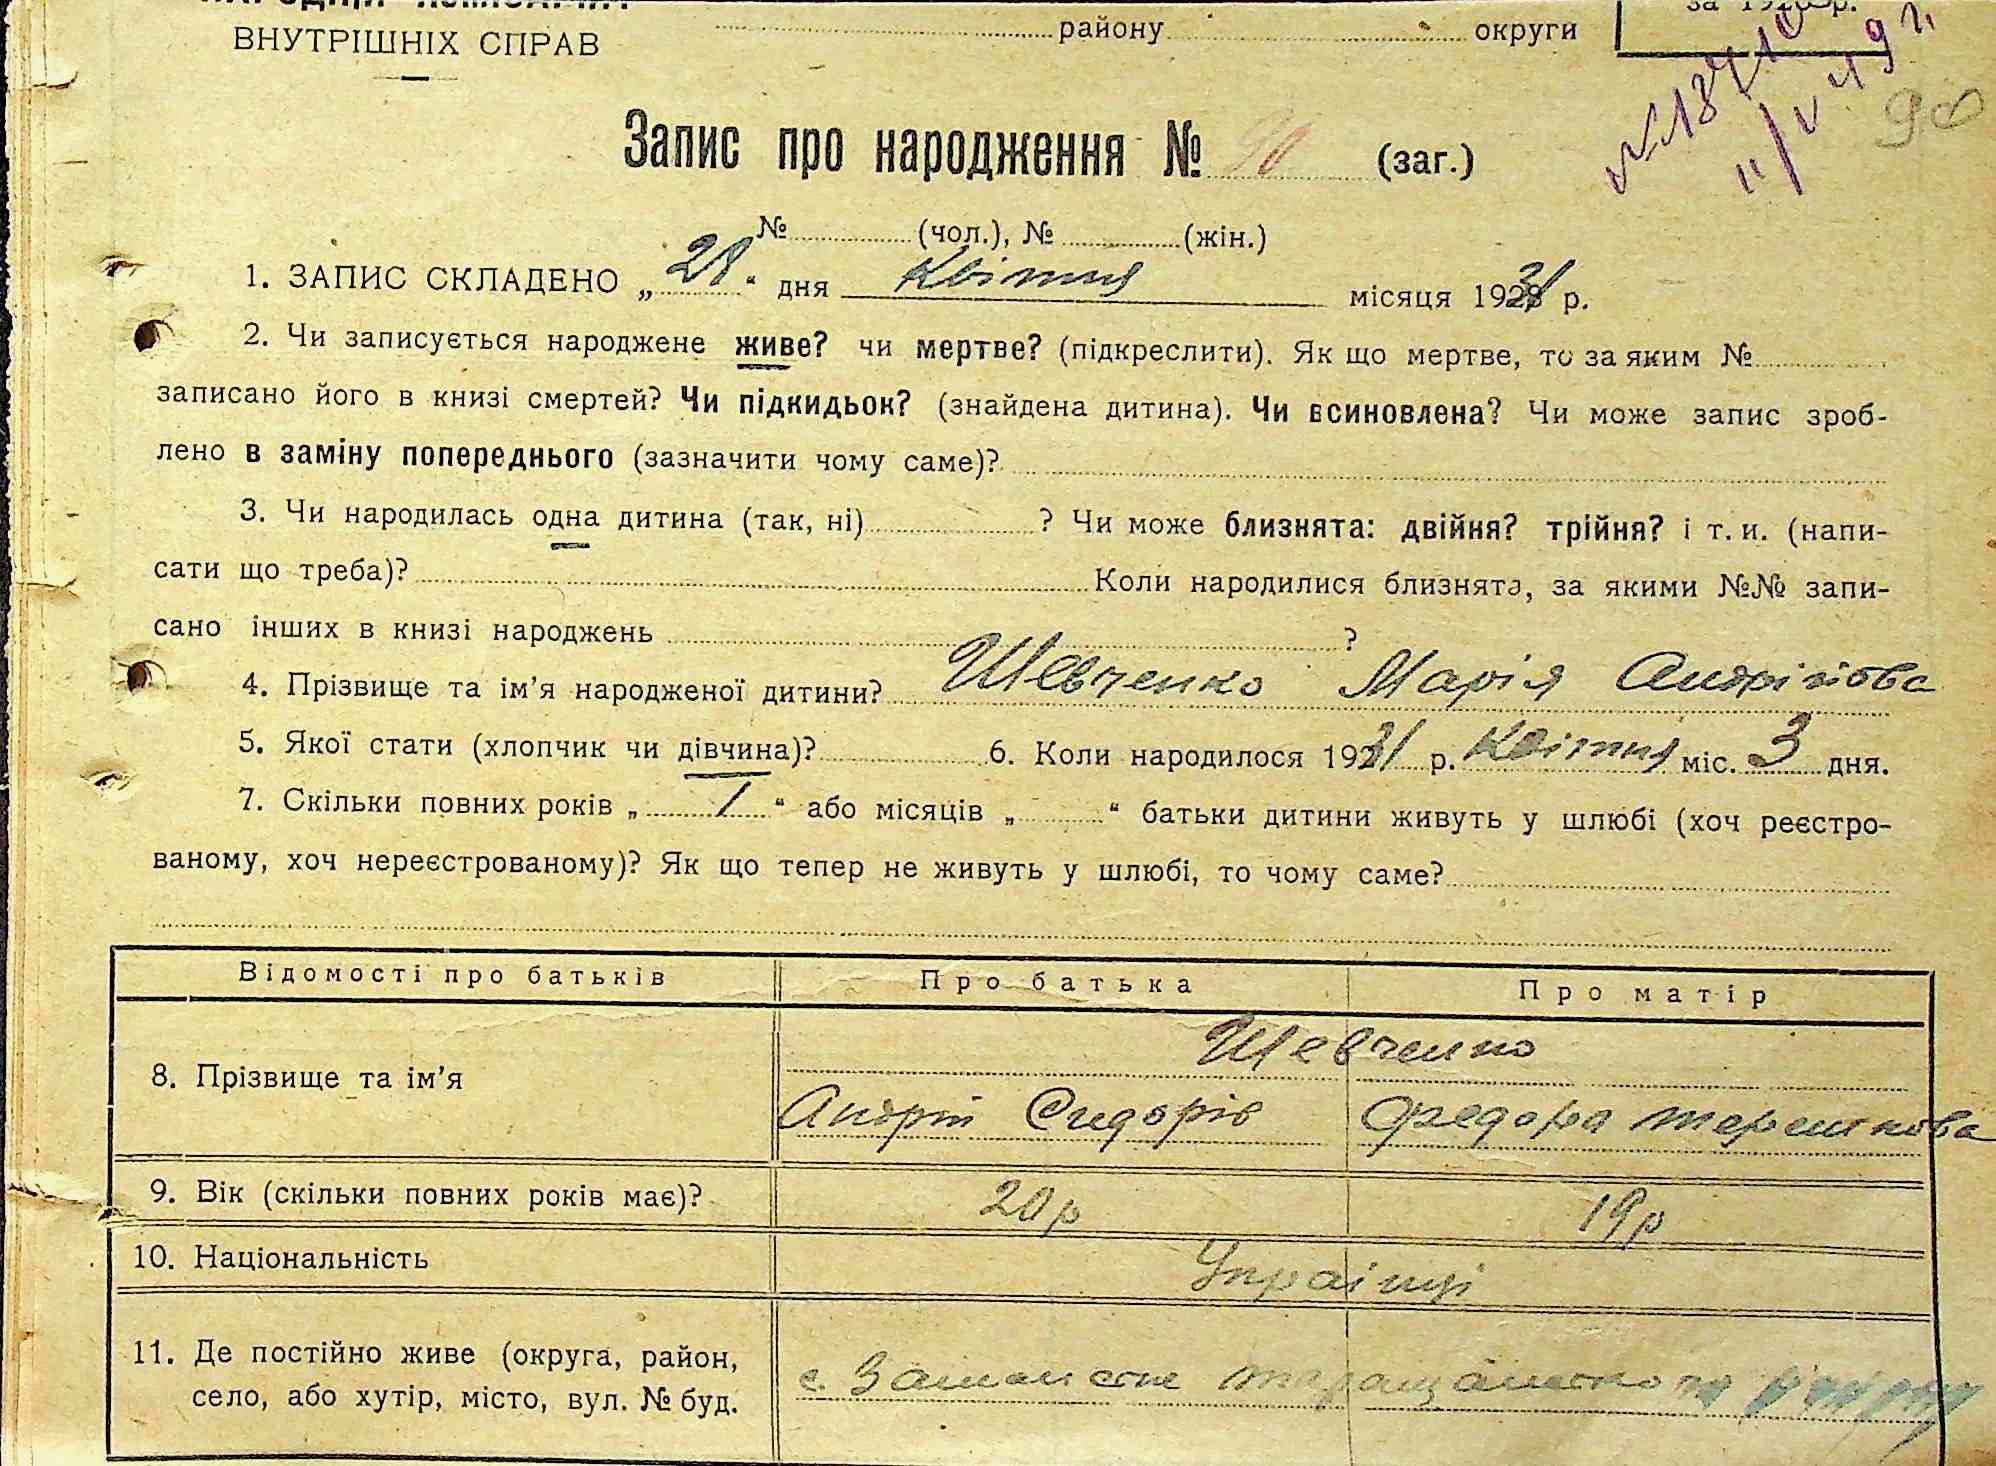 ВНУТРІШНІХ СПРАВ
району округи
Запис про народження № 90 (заг.)
90
№ (чол.), № (жін.)
1. ЗАПИС СКЛАДЕНО „28“ дня Квітня місяця 1931 р.
2. Чи записується народжене живе? чи мертве? (підкреслити). Як що мертве, то за яким №
записано його в книзі смертей? Чи підкидьок? (знайдена дитина). Чи всиновлена? Чи може запис зроб-
лено в заміну попереднього (зазначити чому саме)?
3. Чи народилась одна дитина (так, ні) ? Чи може близнята: двійня? трійня? і т. и. (напи-
сати що треба)? Коли народилися близнята, за якими №№ запи-
сано інших в книзі народжень ?
4. Прізвище та ім’я народженої дитини? Шевченко Марія Андрійова
5. Якої стати (хлопчик чи дівчина)? 6. Коли народилося 1931 р. Квітня міс. 3 дня.
7. Скільки повних років „ 1 “ або місяців „ “ батьки дитини живуть у шлюбі (хоч реєстро-
ваному, хоч нереєстрованому)? Як що тепер не живуть у шлюбі, то чому саме?
Відомості про батьків Про батька Про матір
Шевченко
8. Прізвище та ім’я
Андрій Сидорів Федора Терешкова
9. Вік (скільки повних років має)? 20р 19р
10. Національність Українці
11. Де постійно живе (округа, район,
село, або хутір, місто, вул. № буд.
с.